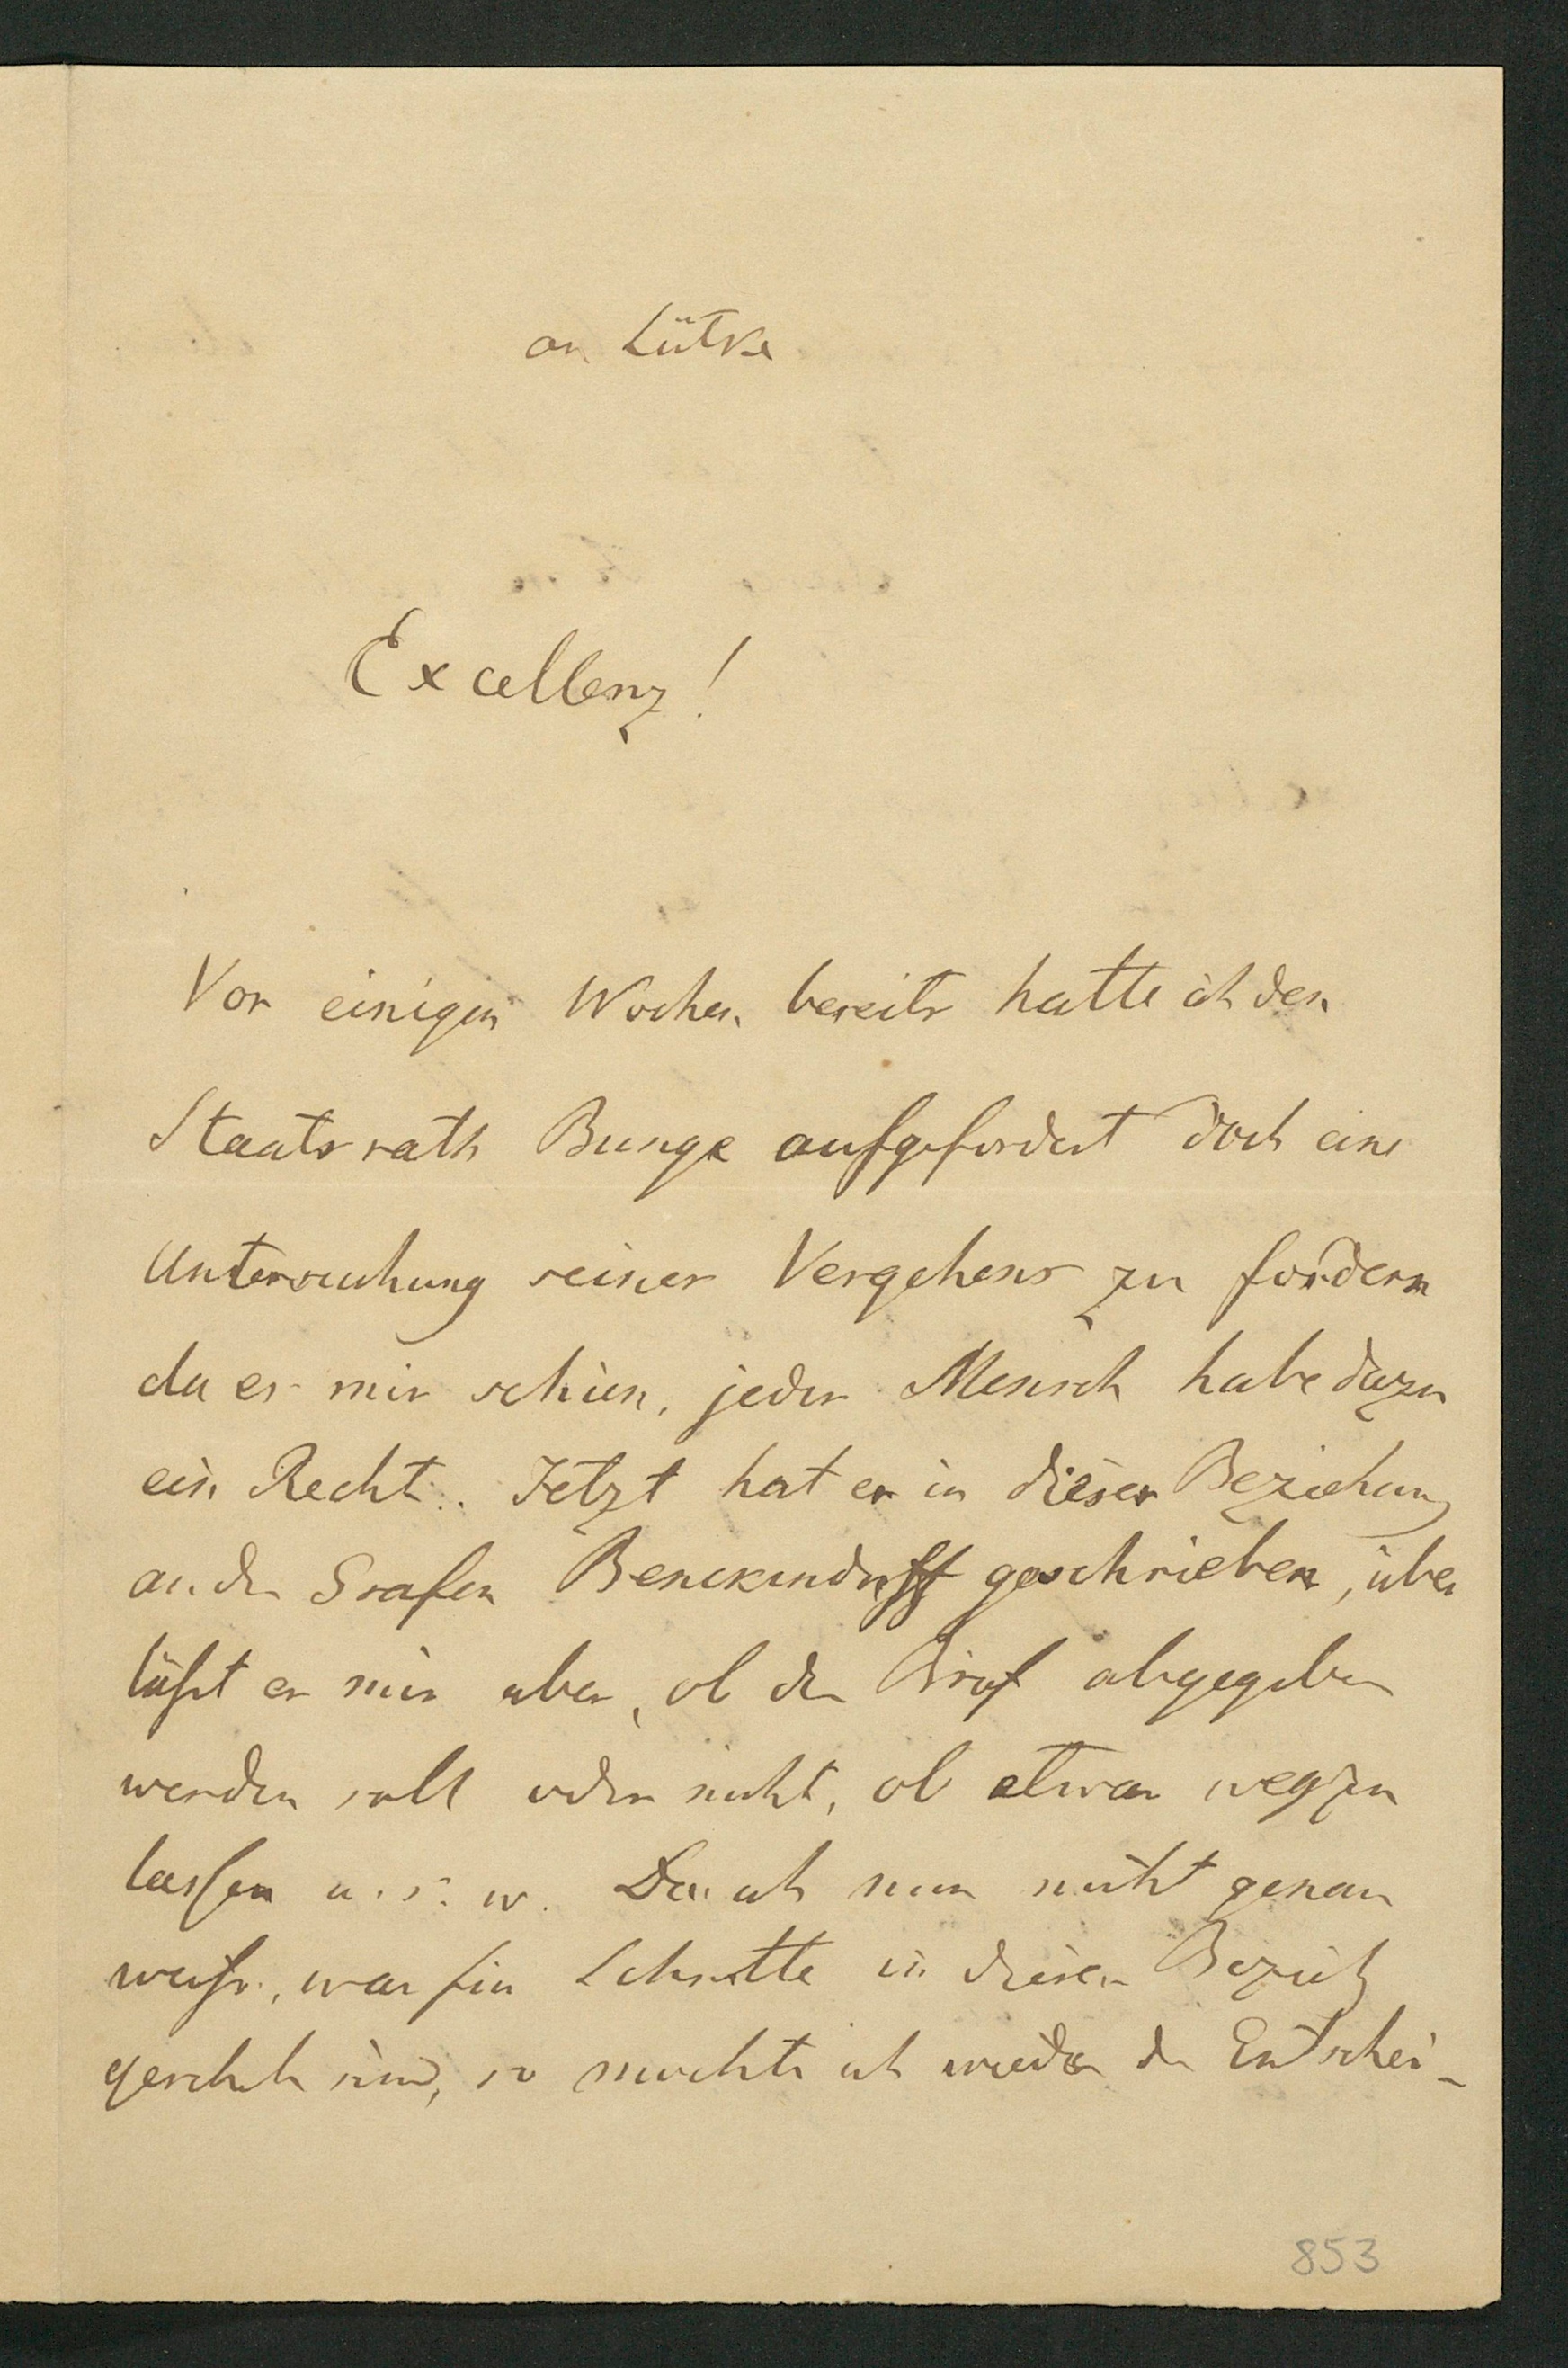 an Lütke
Excellenz!
Vor einigen Wochen bereits hatte ich den
Staatsrath Bunge aufgefordert doch eine
Untersuchung seines Vergehens zu fordern
da es mir schien, jeder Mensch habe dazu
ein Recht. Jetzt hat er in dieser Beziehung
an den Grafen Benckendorff geschrieben, über
läßt es mir aber, ob der Brief abgegeben
werden soll oder nicht, ob etwas wegzu
lassen u. s. w. Da ich nun nicht genau
weiß, was für Schritte in dieser Bezieh
gescheh sind, so möchte ich wieder die Entschei-
853